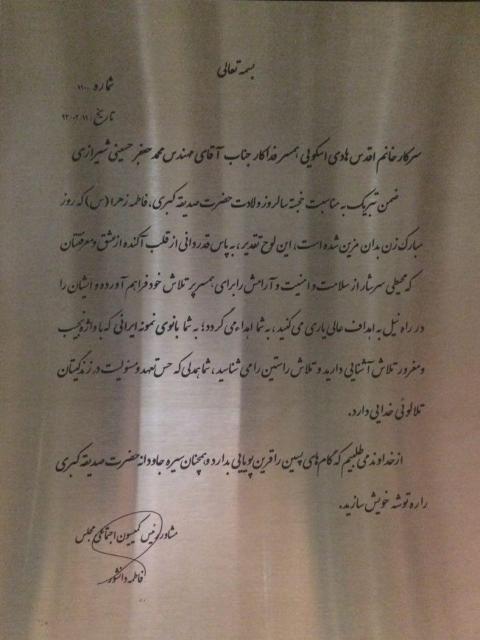 بسمه تعالی
شماره ۱۱۰۰
تاریخ ۹۲،۰۲،۱۱
سرکار خانم اقدس هادی اسکویی همسر فداکار جناب آقای مهندس محمد جعفر حسینی شیرازی
ضمن تبریک به مناسبت خجسته سالروز ولادت حضرت صدیقه کبری، فاطمه زهرا (س) که روز
مبارک زن بدان مزین شده است، این لوح تقدیر، به پاس قدردانی از قلب آکنده از عشق و معرفتتان
که محیطی سرشار از سلامت و امنیت و آرامش را برای همسر پر تلاش خود فراهم آورده و ایشان را
در راه نیل به اهداف عالی یاری می کنید، به شما اهداء می گردد؛ به شما بانوی نمونه ایرانی که با واژه نجیب
و مغرور تلاش آشنایی دارید و تلاش راستین را می شناسید، شما همدلی که حس تعهد و مسئولیت در زندگیتان
تلالوئی خدایی دارد.
از خداوند می طلبیم که گام های پسین را قرین پویایی بدارد و همچنان سیره جاودانه حضرت صدیقه کبری
را ره توشه خویش سازید.
مشاور رئیس کمیسیون اجتماعی مجلس
فاطمه دانشور